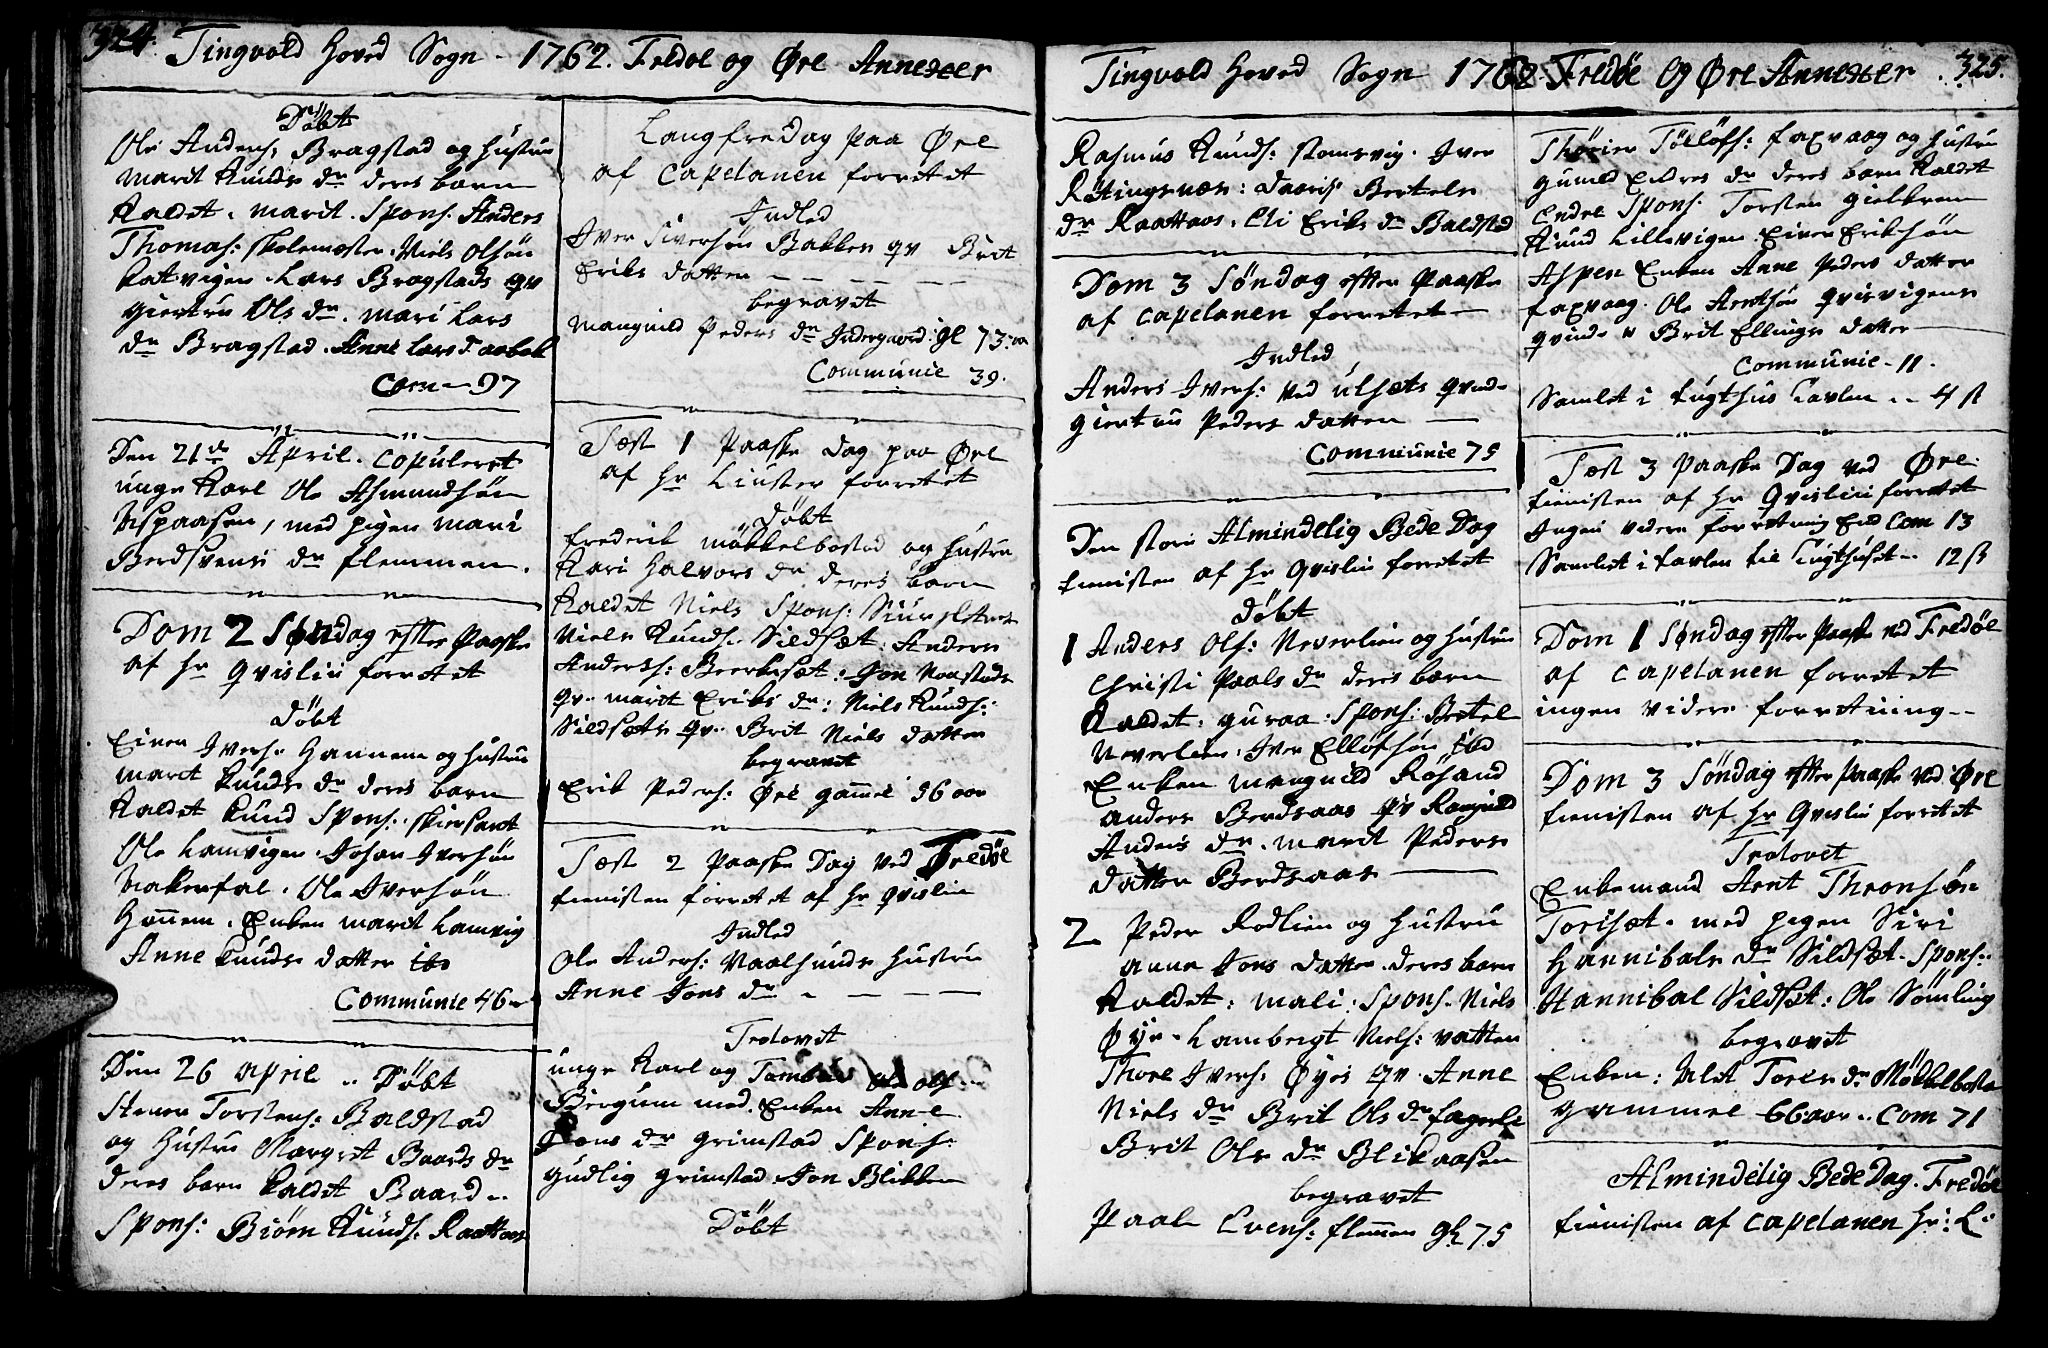 324. Tingvold Hoved Sogn - 1762. Fredøe og Øre Annexer
Døbt
Ole Anders: Bragstad og hustrue
Marit Knuds dr deres barn
Kaldet. Marit. Spons. Anders
Thomas: skolemester. Niels Olsøn
Lars Bragstads qv
giertru Ols dr. Mari Lars
dr Bragstad. Anne Lars d
Com - 97
Den 21de April. Copuleret
unge Karl Ole Asmundsøn
Aspaasen, med pigen Mari
dr flemmen.
Dom 2 Søndag efter Paaske
af hr Qvislin forrettet
Døbt
Einer Ivers: Hannem og hustrue
Marit Knuds dr deres barn
Kaldet Knud Spons:
Ole Lamvigen. Johan Iversøn
Ole Iversøn
Hannem. Enken Marit Lamvig
Anne Knuds datter ibd
Communic 46
Den 26 April .. Døbt
Stener Torstens: Baldstad
og Hustru Margret Baards dr
deres barn kaldet Baard..
Spons: Biørn Knuds: Raattaas
Langfredag paa Øre
af Capelanen forrettet
Indled
Iver Siversøn Bakken qv Brit
Eriks datter
begravet
Peders dr gl 73
Communic 39.
Fest 1 Paaske Dag paa Øre
af hr Liuster forrettet
Døbt
frederik møkkelbostad og hustru
Kari Halvors dr deres barn
Kaldet Niels Spons:
Niels Knuds: Sildset. Anders
Anders: Beerkeset: Jon Naastads
qv. marit Eriks dr: Niels Knuds:
Sildsets qv. Brit Niels datter
begravet
Erik Peders: Øre gammel 96 aar
Fest 2 Paaske Dag ved Fredøe
tienisten forrettet af hr Qvislin
Indled
Ole Anders: Vaalsunds hustru
Anne Jons dr
Trolovet
unge Karl og Ole Ols:
Biergum med. Enken Anne
Jons dr grimstad Spons:
gudlig grimstad. Jon Blikken
Døbt
Tingvold Hoved Sogn 1762 Fredøe og Øre Annexer. 325.
Rasmus Knuds: stomsvig. Iver
Røtingsnæs: Bertels
dr Raattaas. Eli Eriks dr Baldstad
Dom 3 Søndag efter Paaske
af Capelanen forrettet
Indled
Anders Ivers: ved ulsets qvinde
giertru Peders datter
Communic 75
Den store Almindelig Bede Dag
tienisten af hr Qvislin forrettet
Døbt
1 Anders Ols: Neverlien og hustrue
Christi Paals dr deres barn
Kaldet: guraa: Spons: Bertel
Neverlien. Iver Ellofsøn ibd
Enken Magnild Røsand
Anders Berdsaas qv Ragnild
Anders dr. Marit Peders
datter Berdsaas
2 Peder Rodlien og Hustru
Anne Jons datter. deres barn
Kaldet: Mali: Spons. Niels
Øye. Lambregt Niels: vatten
Thore Ivers: Øyes qv. Anne
Niels dr Brit Ols dr fagerli
Brit Ols dr Blikaasen
begravet
Paal Evens: flemmen gl 75
Tøllofs: faxvaag og hustru
gunild Endres dr deres barn Kaldet
Endre Spons. Torsten gielbreen
Knud Lillevigen. Einer Eriksøn
Aspen Enken Anne Peders datter
faxvaag. Ole Arntsøn Qvisvigens
qvinde Brit Ellings datter
Communic - 11.
Samlet i tugthus tavlen .. 4 s
Fest 3 Paaske Dag ved Øre.
tienisten af hr Qvislin forrettet
Ingen videre forretning End Com 13
Samlet i tavlen til tugthuset .. 12 s
Dom 1 Søndag efter Paaske ved Fredøe
af Capelanen forrettet
ingen videre forretning..
Dom 3 Søndag efter Paaske ved Øre
tienisten af hr Qvislin forrettet
Trolovet
Enkemand Arnt Thronsøn
Toriset. med pigen Siri
Hannibals dr Sildset. Spons:
Hannibal Sildset: Ole Sømling
begravet
Enken: Tores dr Møkkelbosta
gammel 66 aar .. Com 71
Almindelig Bede Dag. Fredøe
tienisten af Capelanen Hr: L: